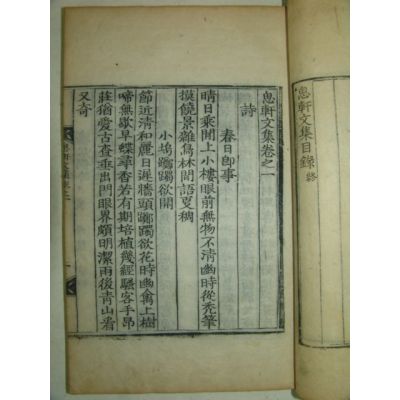 思軒文集目錄終
思軒文集卷之一
詩
春日卽事
晴日乘閒上小樓眼前無物不淸幽時從禿筆
摸饒景雜鳥林間語更稠
小塢躑躅欲開
節近淸和麗日遲墻頭躑躅欲花時幽禽上樹
啼無歇早蝶尋香若有期培植幾經騷客手昂
莊猶愛古査垂出門眼界頗明潔雨後靑山看
又奇